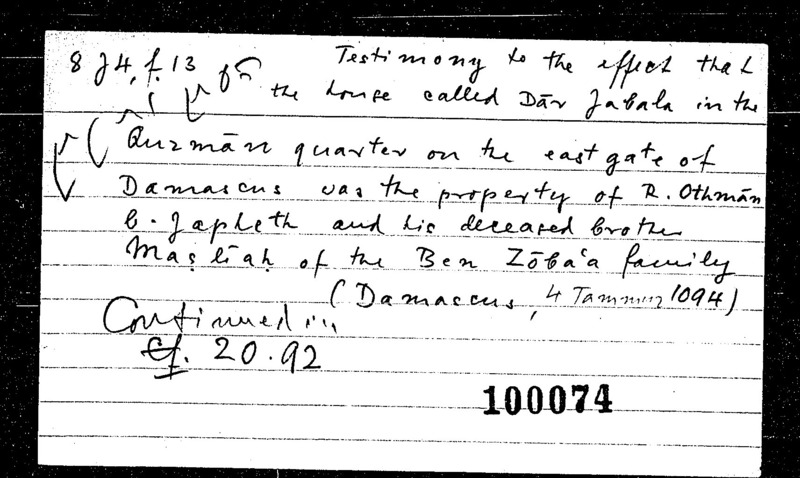 8 J4, f. 13 Testimony to the effect that
the house called Dār Jabala in the
Quzmān quarter on the east gate of
Damascus was the property of R. Othmān
b. Japheth and his deceased brother
Maṣlīaḥ of the Ben Zōbaʿa family
(Damascus, 4 Tammuz 1094)
Continued...
Cf. 20.92
100074